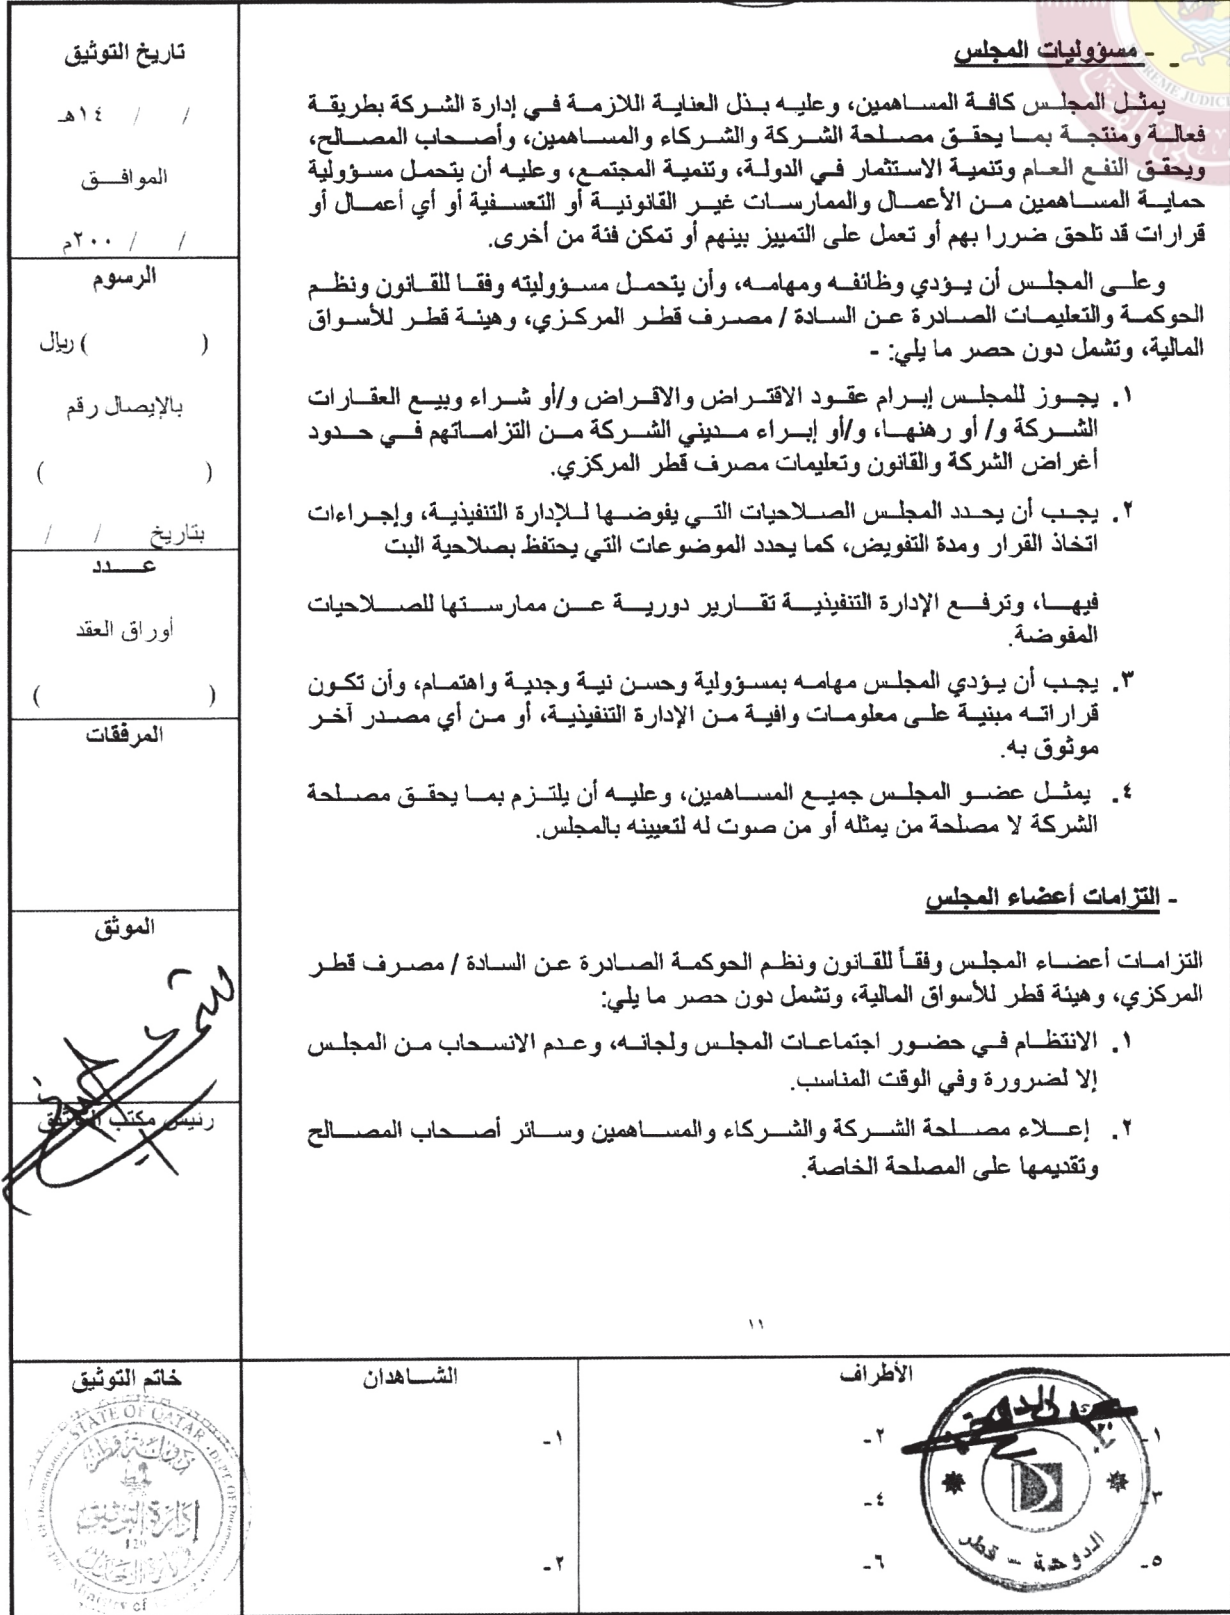 - مسؤوليات المجلس
يمثل المجلس كافة المساهمين، وعليه بذل العناية اللازمة في إدارة الشركة بطريقة
فعالة ومنتجة بما يحقق مصلحة الشركة والشركاء والمساهمين، وأصحاب المصالح،
ويحقق النفع العام وتنمية الاستثمار في الدولة، وتنمية المجتمع، وعليه أن يتحمل مسؤولية
حماية المساهمين من الأعمال والممارسات غير القانونية أو التعسفية أو أي أعمال أو
قرارات قد تلحق ضررا بهم أو تعمل على التمييز بينهم أو تمكن فئة من أخرى.
وعلى المجلس أن يؤدي وظائفه ومهامه، وأن يتحمل مسؤوليته وفقا للقانون ونظم
الحوكمة والتعليمات الصادرة عن السادة / مصرف قطر المركزي، وهيئة قطر للأسواق
المالية، وتشمل دون حصر ما يلي: -
١. يجوز للمجلس إبرام عقود الاقتراض والاقراض و/أو شراء وبيع العقارات
الشركة و/ أو رهنها، و/أو إبراء مديني الشركة من التزاماتهم في حدود
أغراض الشركة والقانون وتعليمات مصرف قطر المركزي.
٢. يجب أن يحدد المجلس الصلاحيات التي يفوضها للإدارة التنفيذية، وإجراءات
اتخاذ القرار ومدة التفويض، كما يحدد الموضوعات التي يحتفظ بصلاحية البت
فيها، وترفع الإدارة التنفيذية تقارير دورية عن ممارستها للصلاحيات
المفوضة.
٣. يجب أن يؤدي المجلس مهامه بمسؤولية وحسن نية وجدية واهتمام، وأن تكون
قراراته مبنية على معلومات وافية من الإدارة التنفيذية، أو من أي مصدر آخر
موثوق به.
٤. يمثل عضو المجلس جميع المساهمين، وعليه أن يلتزم بما يحقق مصلحة
الشركة لا مصلحة من يمثله أو من صوت له لتعيينه بالمجلس.
- التزامات أعضاء المجلس
التزامات أعضاء المجلس وفقاً للقانون ونظم الحوكمة الصادرة عن السادة / مصرف قطر
المركزي، وهيئة قطر للأسواق المالية، وتشمل دون حصر ما يلي:
١. الانتظام في حضور اجتماعات المجلس ولجانه، وعدم الانسحاب من المجلس
إلا لضرورة وفي الوقت المناسب.
٢. إعلاء مصلحة الشركة والشركاء والمساهمين وسائر أصحاب المصالح
وتقديمها على المصلحة الخاصة.
١١
تاريخ التوثيق
/ / ١٤هـ
الموافق
/ / ٢٠٠م
الرسوم
( ) ريال
بالإيصال رقم
( )
بتاريخ / /
عدد
أوراق العقد
( )
المرفقات
الموثق
رئيس مكتب التوثيق
الأطراف
١- ٢-
٣- ٤-
٥- ٦-
الدوحة - قطر
الشاهدان
١-
٢-
خاتم التوثيق
STATE OF QATAR
دولة قطر
إدارة التوثيق
120
وزارة العدل